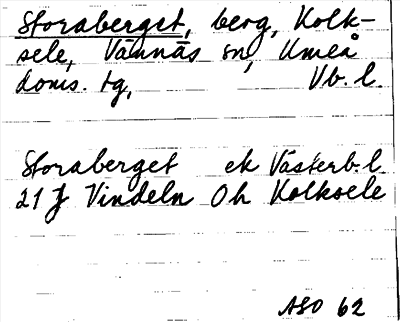 Storaberget, berg, Kolk-
sele, Vännäs sn, Umeå
doms. tg, Vb. l.
Storaberget ek Västerb. l.
21 J Vindeln Oh Kolksele
ASO 62